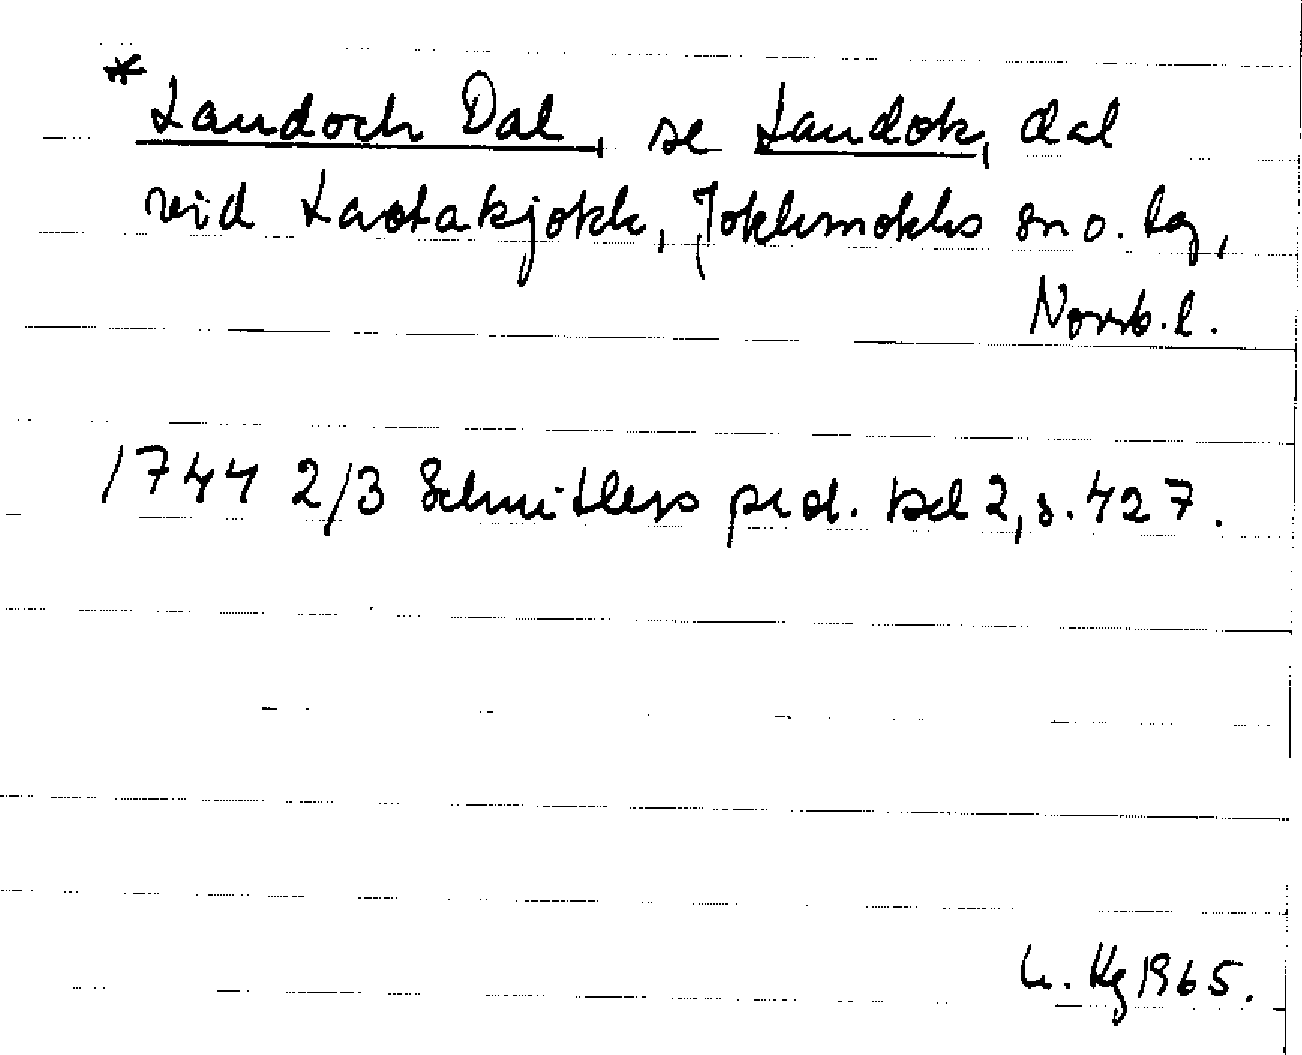 *Landoch Dal, se Landok, dal
vid Lastakjokk, Jokkmokks sn o. lg,
Norrb. l.
1744 2/3 Schnitlers prot. bd 2, s. 427.
1965.